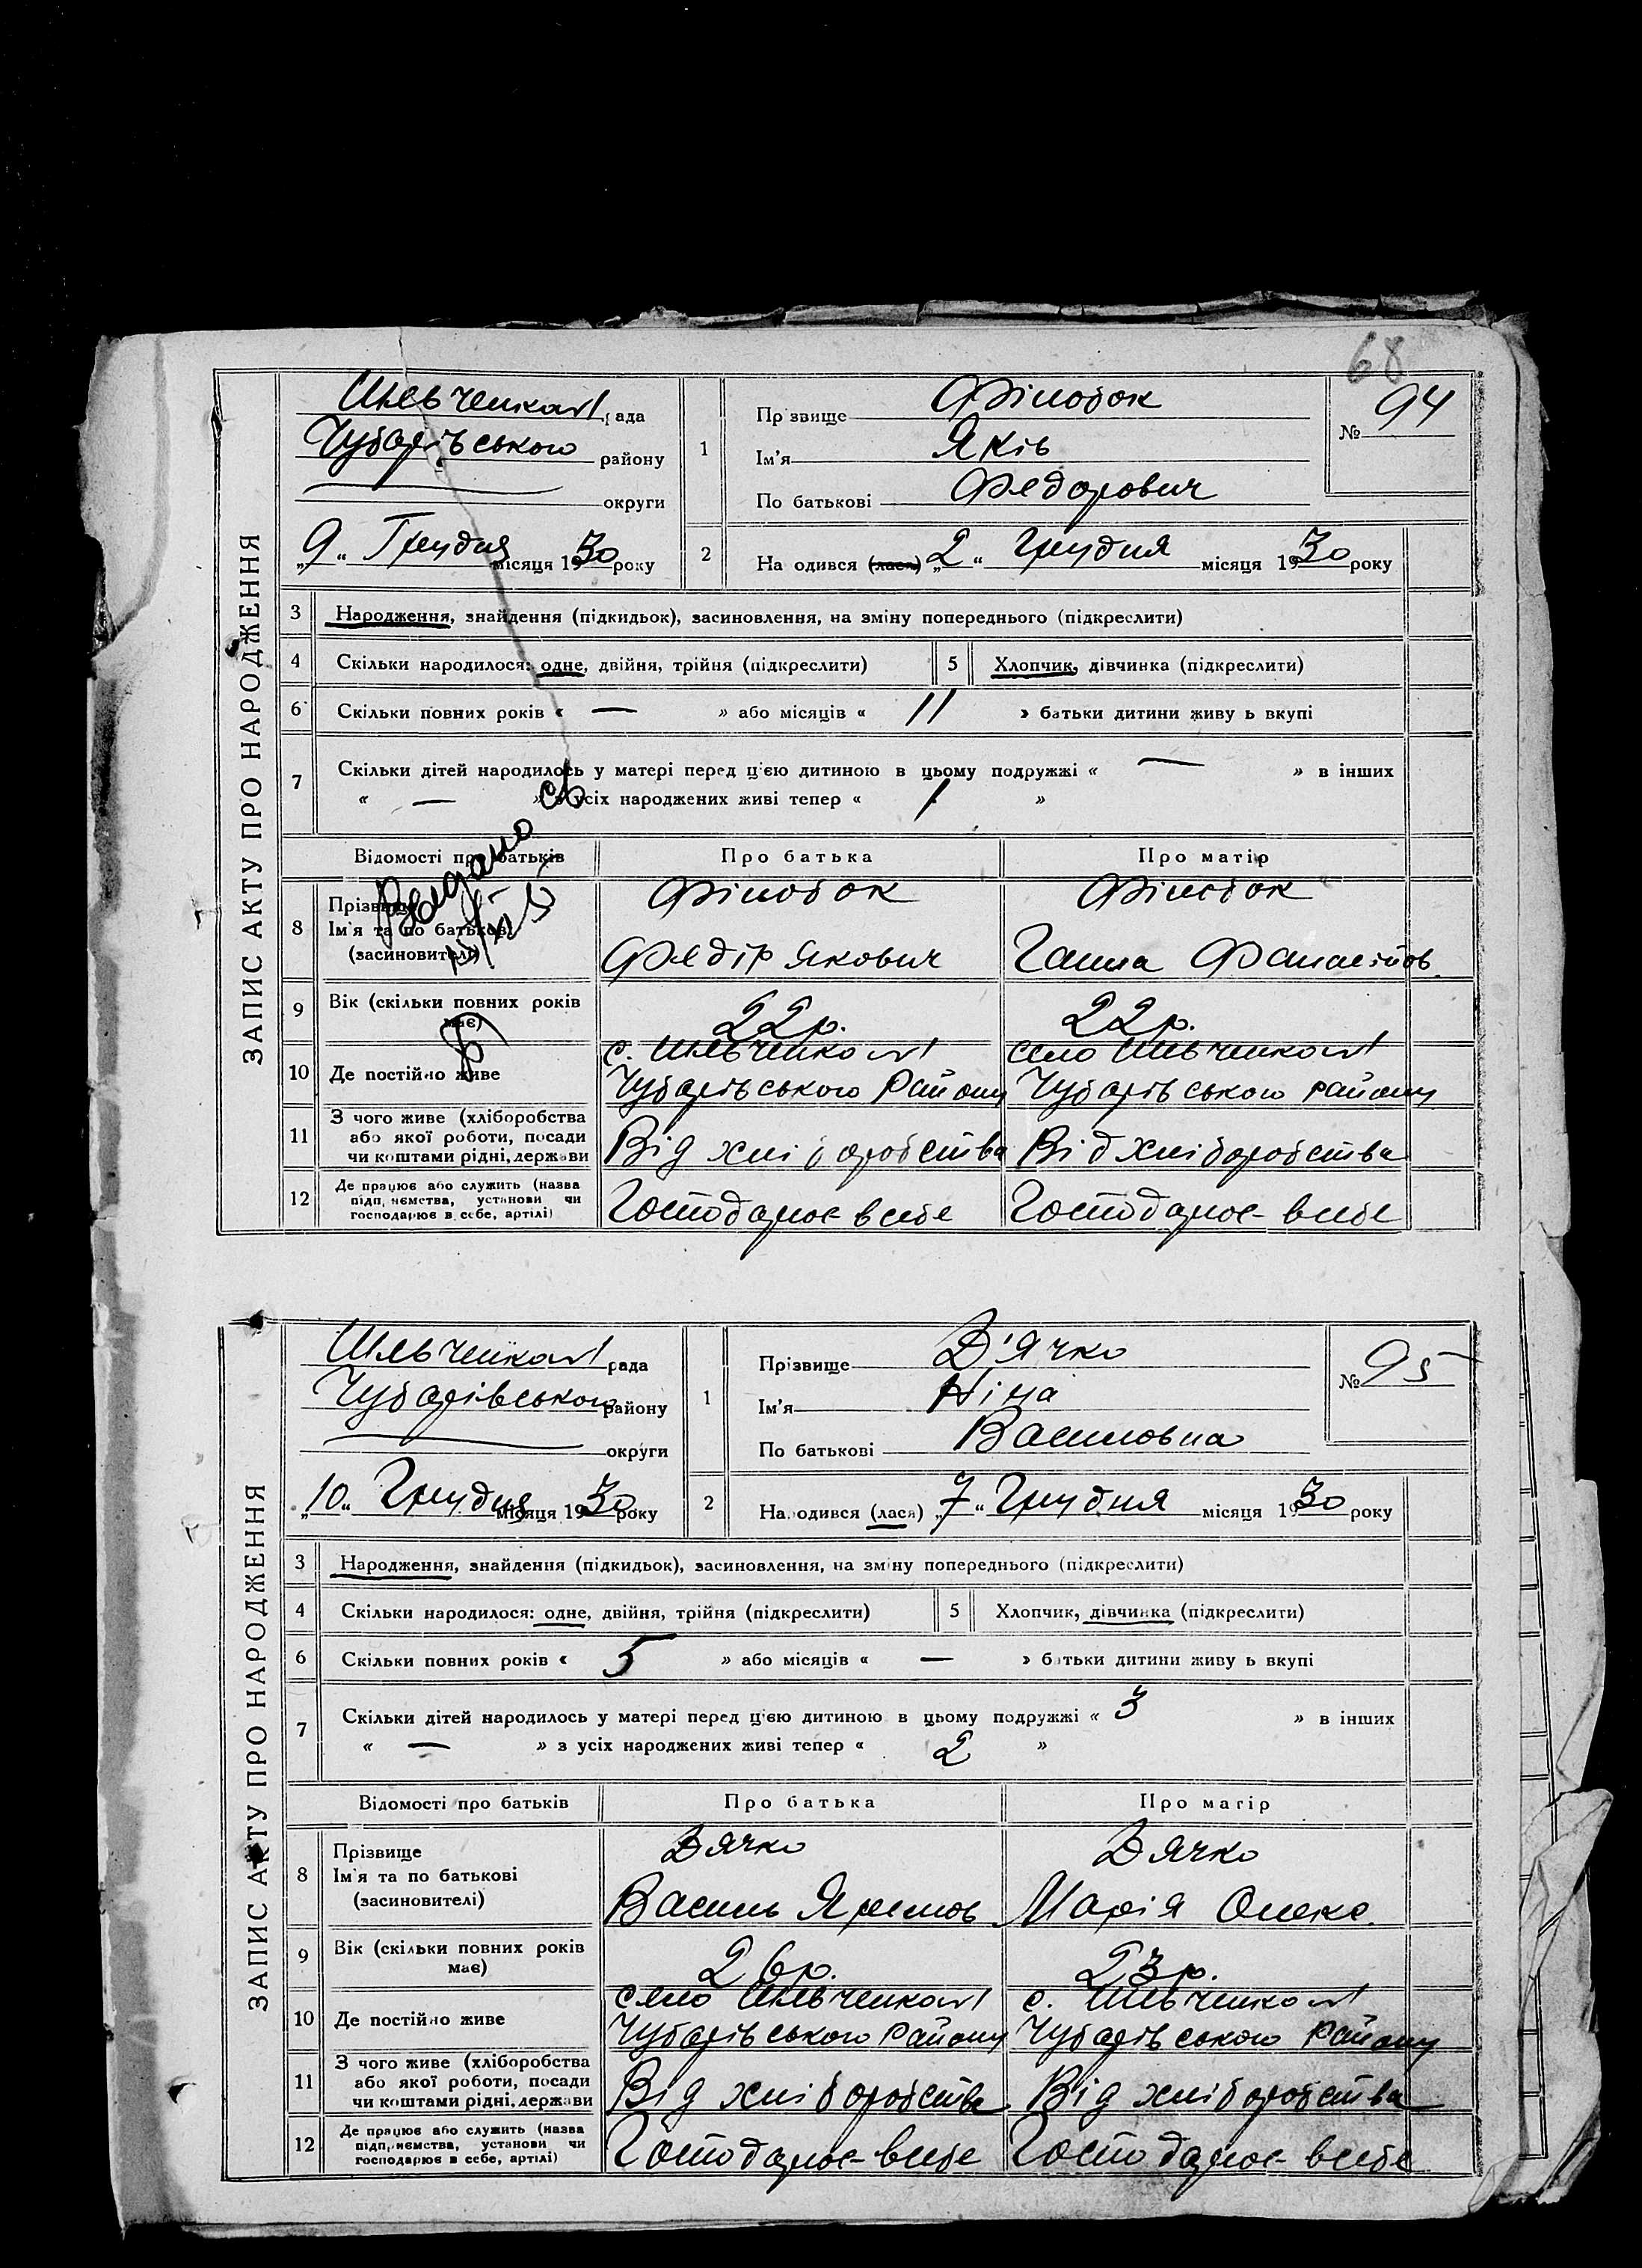 68
ЗАПИС АКТУ ПРО НАРОДЖЕННЯ
рада
Чубарівського району
округи
„9„ Грудня місяця 1930 року
1
Прізвище Філобок
Ім'я Яків
По батькові Федорович
№ 94
2
На одився (лася) „2“ Грудня місяця 1930 року
3 Народження, знайдення (підкидьок), засиновлення, на зміну попереднього (підкреслити)
4 Скільки народилося: одне, двійня, трійня (підкреслити) 5 Хлопчик, дівчинка (підкреслити)
6 Скільки повних років « — » або місяців « 11 » батьки дитини живу ь вкупі
7 Скільки дітей народилось у матері перед цією дитиною в цьому подружжі « — » в інших
« — » з усіх народжених живі тепер « 1 »
Відомості про батьків Про батька Про матір
Видано св
8 Прізвище
Ім'я та по батькові
(засновителі)
Філобок
Федір Якович
Філобок
Ганна
9 Вік (скільки повних років має) 22 р. 22 р.
10 Де постійно живе
с.
Чубарівського Району
село
Чубарівського району
11 З чого живе (хліборобства
або якої роботи, посади
чи коштами рідні, держави
Від хліборобства Від хліборобства
12 Де працює або служить (назва
підприємства, установи чи
господарює в себе, артілі)
Господарює в себе Господарює в себе
ЗАПИС АКТУ ПРО НАРОДЖЕННЯ
рада
Чубарівського району
округи
„10„ Грудня місяця 1930 року
1
Прізвище Д'ячко
Ім'я Ніна
По батькові Василовна
№ 95
2
Народився (лася) „7“ Грудня місяця 1930 року
3 Народження, знайдення (підкидьок), засиновлення, на зміну попереднього (підкреслити)
4 Скільки народилося: одне, двійня, трійня (підкреслити) 5 Хлопчик, дівчинка (підкреслити)
6 Скільки повних років « 5 » або місяців « — » батьки дитини живу ь вкупі
7 Скільки дітей народилось у матері перед цією дитиною в цьому подружжі « 3 » в інших
« — » з усіх народжених живі тепер « 2 »
Відомості про батьків Про батька Про матір
8 Прізвище
Ім'я та по батькові
(засиновителі)
Дячко
Василь Яремов
Дячко
Марія Олекс.
9 Вік (скільки повних років має) 26 р. 23 р.
10 Де постійно живе
село
Чубарівського Району
с.
Чубарівського Району
11 З чого живе (хліборобства
або якої роботи, посади
чи коштами рідні, держави
Від хліборобства Від хліборобства
12 Де працює або служить (назва
підприємства, установи чи
господарює в себе, артілі)
Господарює в себе Господарює в себе